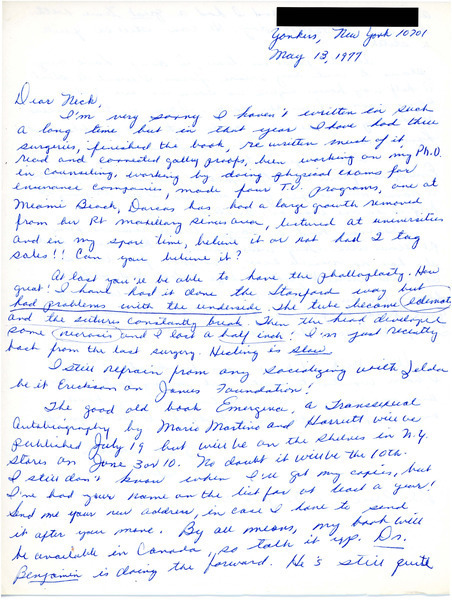 Yonkers, New York 10701
May 13, 1977
Dear Nick,
I'm very sorry I haven't written for such
a long time but in that year I have had three
surgeries, finished the book, re written most of it,
read and corrected galley proofs, been working on my Ph.D.
in counseling, working by doing physical exams for
insurance companies, made four T.V. programs, one at
Miami Beach, has had a large growth removed
from her Rt maxillary sinus area, lectured at universities
and in my spare time, believe it or not had 2 tag
sales!! Can you believe it?
At last you'll be able to have the phalloplasty. How
great! I have had it done the Stanford way but
had problems with the underside. The tube became edematous
and the sutures constantly break. Then the head developed
some necrosis and I lost a half inch! I'm just recently
back from the last surgery. Healing is slow.
I still refrain from any socializing with Zelda
be it Erickson or James Foundation!
The good old book Emergence, a Transsexual
Autobiography by Mario Martino and Harriett will be
published July 19 but will be on the shelves in N.Y.
stores on June 3 or 10. No doubt it will be the 10th.
I still don't know when I'll get my copies, but
I've had your name on the list for at least a year!
Send me your new address, in case I have to send
it after your move. By all means, my book will
be available in Canada, so talk it up. Dr.
Benjamin is doing the forward. He's still quite